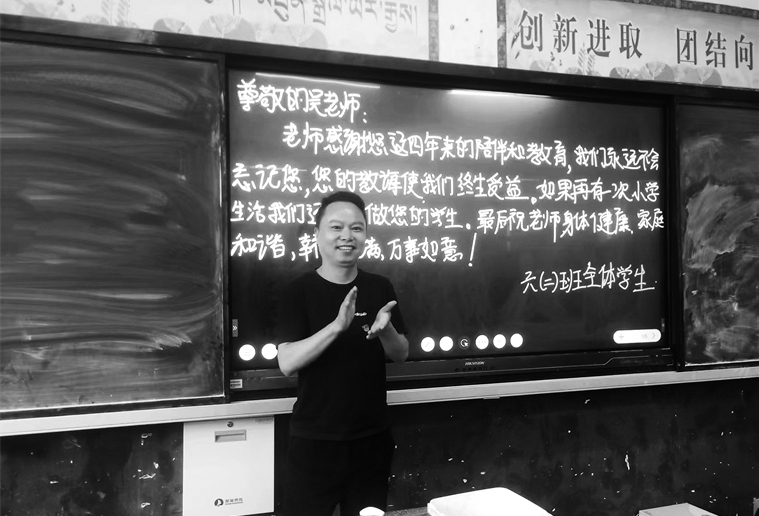 创新进取 团结向
尊敬的吴老师：
老师感谢您这四年来的陪伴和教育，我们永远不会
忘记您，您的教诲使我们终生受益。如果再有一次小学
生活我们还 做您的学生。最后祝老师身体健康、家庭
和谐， 满，万事如意！
六（二）班全体学生
HIKVISION